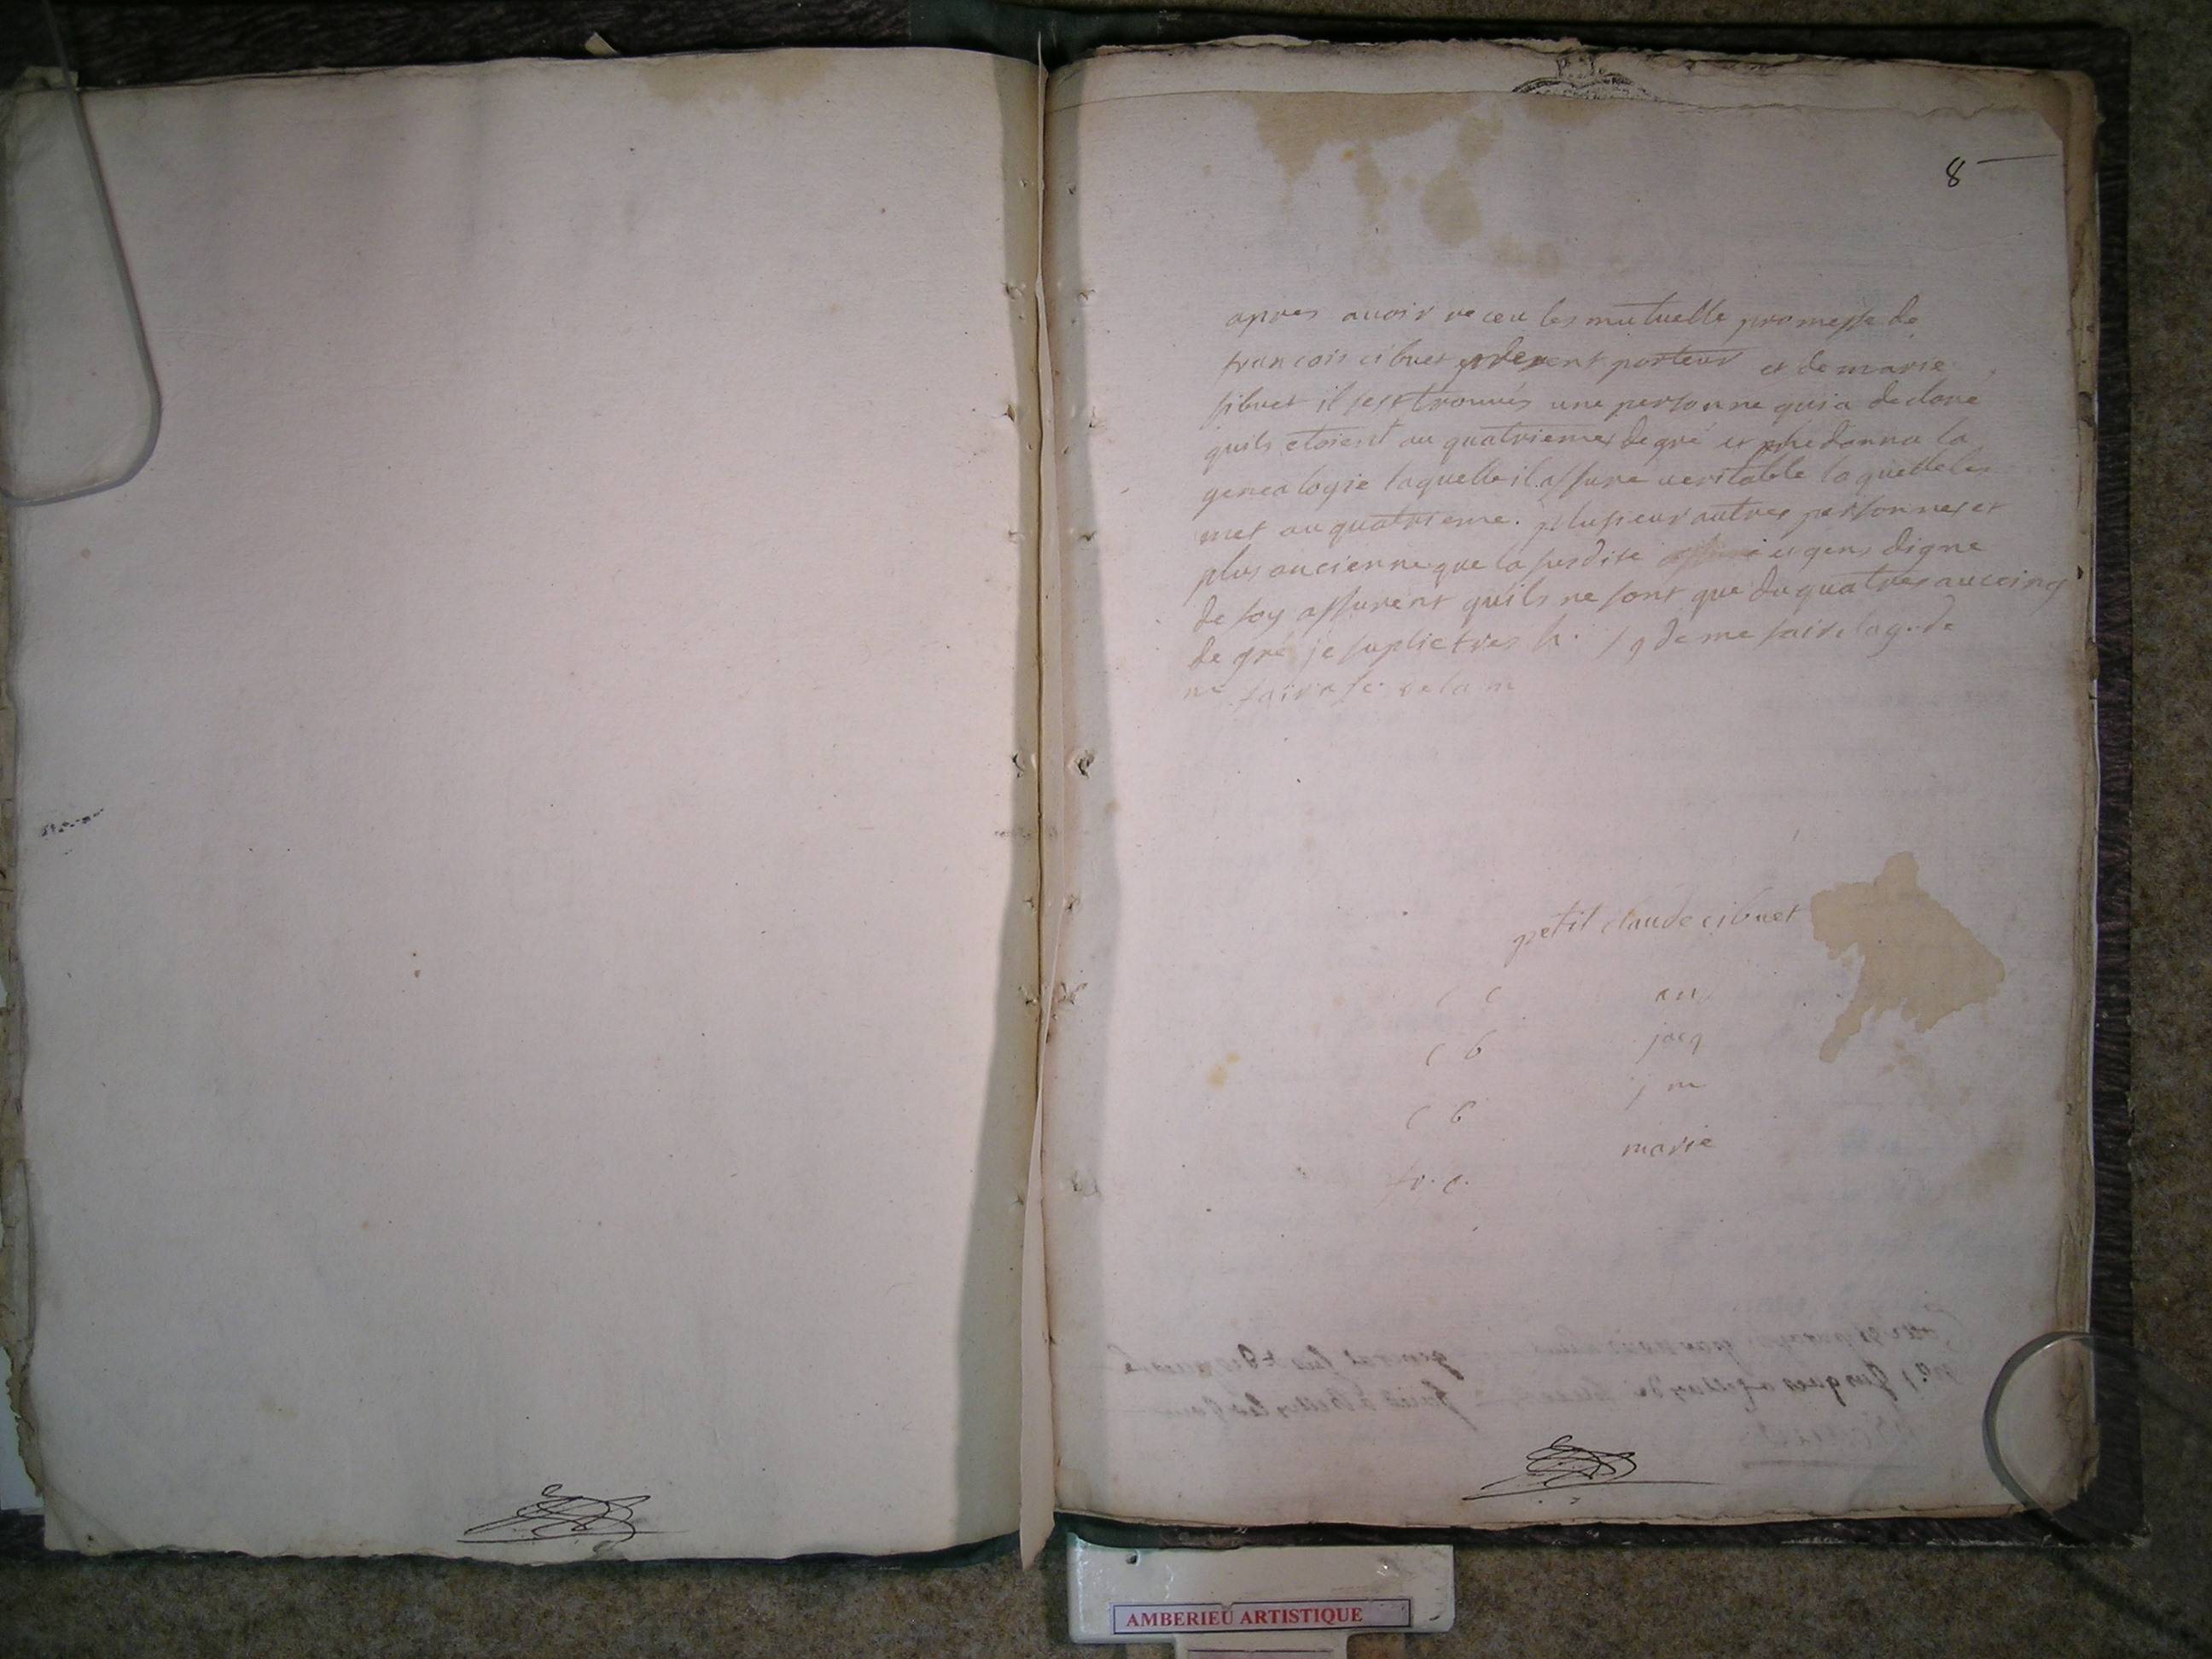 8
apres avoir receu les mutuelle promesse de
francois cibuet present porteur et de marie
sibuet il sest trouvés une personne qui a declare
quils etoient au quatriemes degré et me donna la
genealogie laquelle il assure veritable laquelle les
met au quatrieme. plusieur autres personnes et
plus ancienne que la susdite et gens digne
de foy assurent quils ne sont que du quatres au cinq
degré je suplie tres h. de me faire la g. de
me faire de la m
petit claude cibuet
c c
c b jacq
j m
c b
marie
fr. c.
AMBERIEU ARTISTIQUE